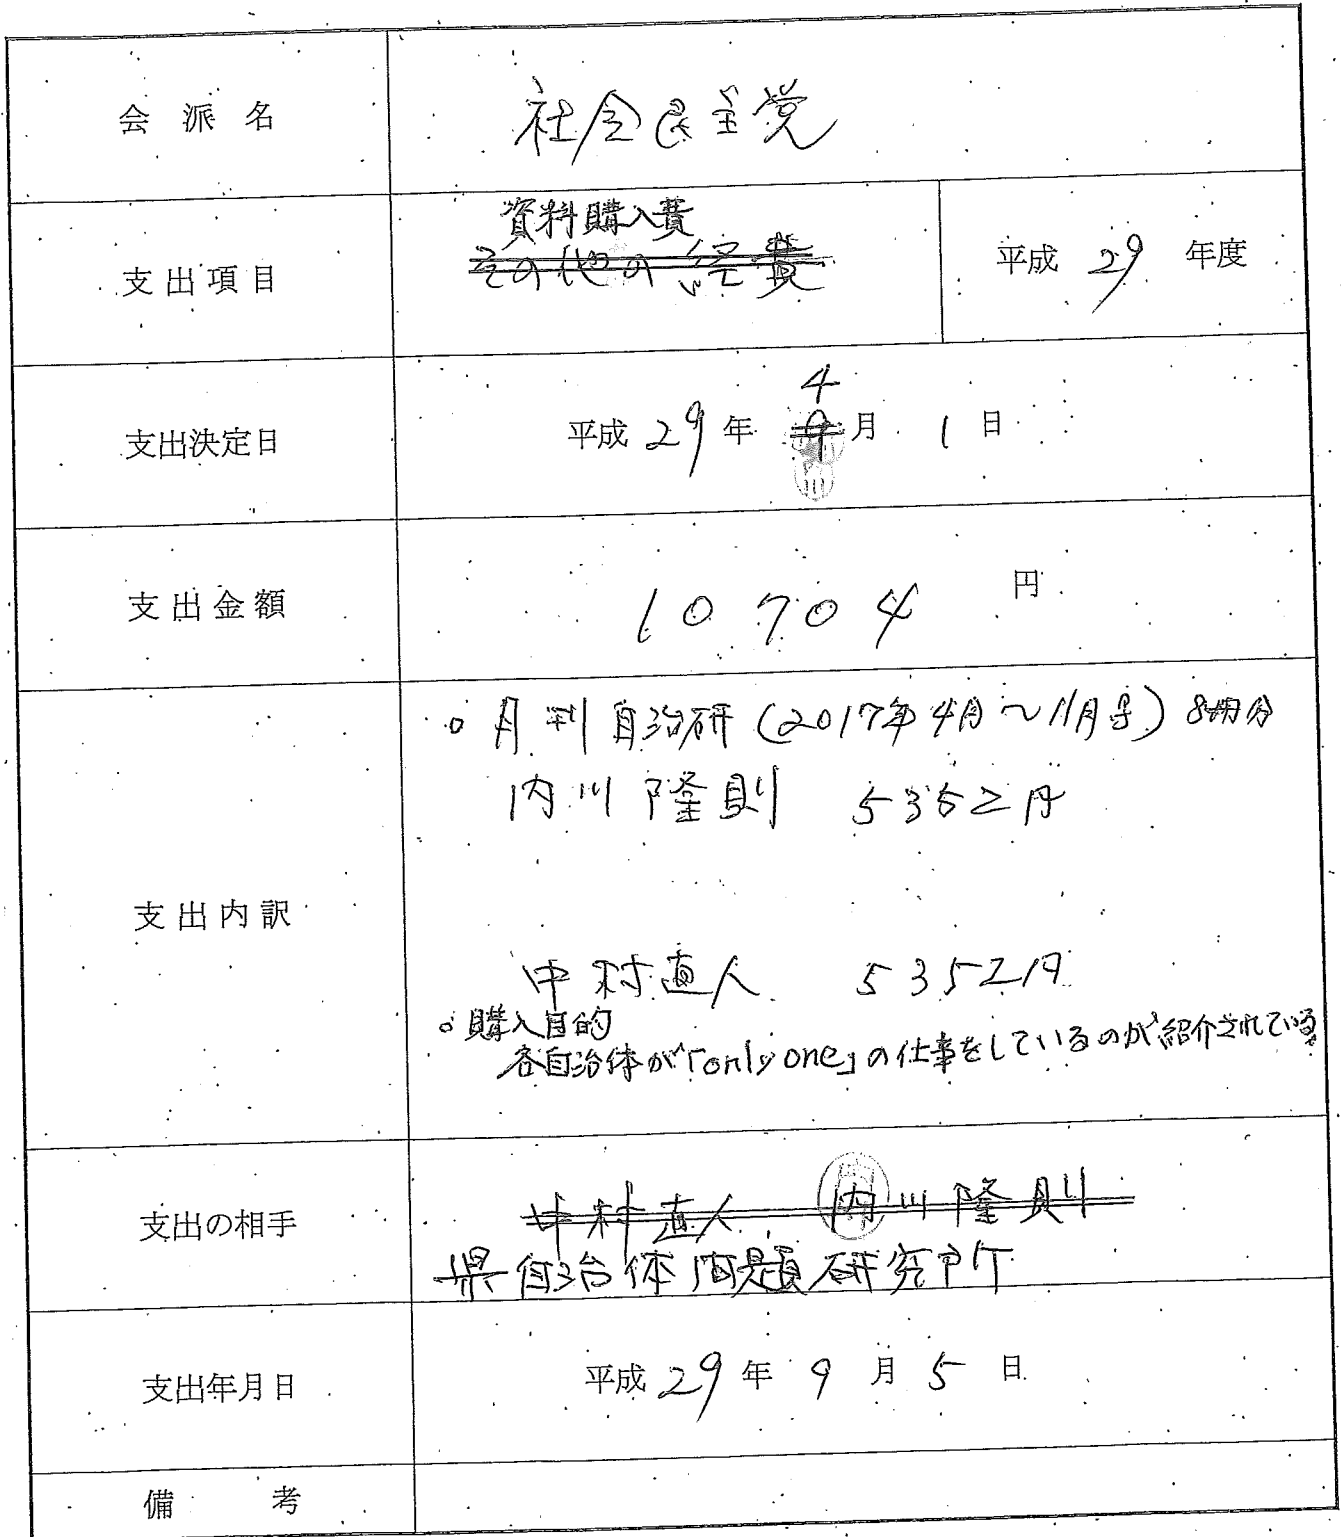 会派名 社会民主党
支出項目 資料購入費 平成 29 年度
その他の経費
支出決定日 平成 29 年 4 月 1 日
9
支出金額 10704 円
支出内訳
○月刊自治研(2017年4月~11月号)8ヶ月分
内川隆則 5352円
中村直人 5352円
○購入目的
各自治体が「only one」の仕事をしているのが紹介されている
支出の相手 中村直人 内川隆則
県自治体問題研究所
支出年月日 平成 29 年 9 月 5 日
備考